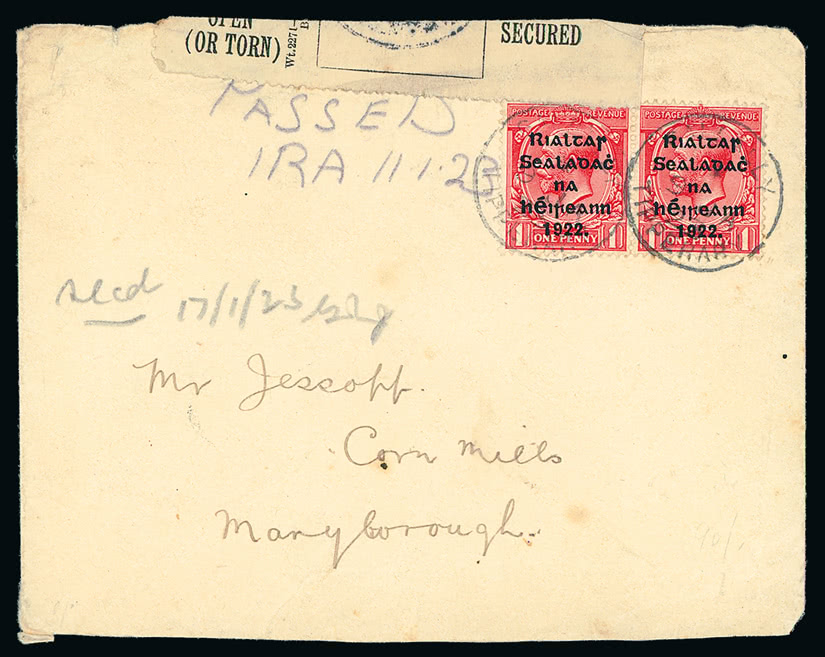 OPEN
(OR TORN)
Wt.2271—
SECURED
PASSED
IRA 11.1.23
POSTAGE REVENUE
Rialtar
Sealadaċ
na
hÉireann
1922.
1 ONE PENNY 1
POSTAGE REVENUE
Rialtar
Sealadaċ
na
hÉireann
1922.
1 ONE PENNY 1
TIPPERARY
recd 17/1/23
Mr Jessopp.
Corn Mills
Maryborough.